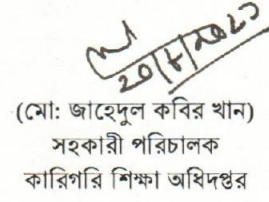 (মো: জাহেদুল কবির খান)
সহকারী পরিচালক
কারিগরি শিক্ষা অধিদপ্তর